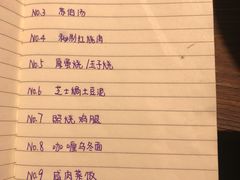 No.3 罗宋汤
No.4 秘制红烧肉
No.5 厚蛋烧/玉子烧
No.6 芝士焗土豆泥
No.7 照烧鸡腿
No.8 咖喱乌冬面
No.9 咸肉菜饭